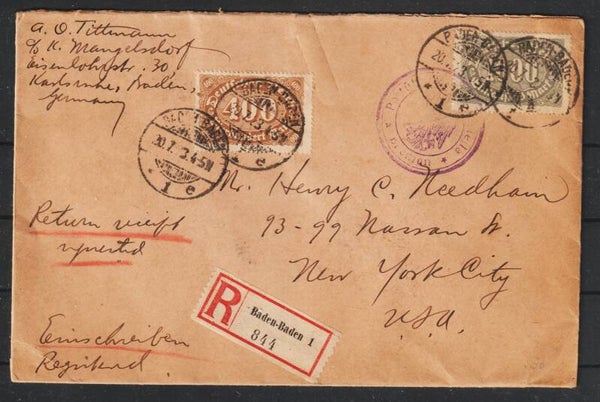 A. O. Tittmann
c/o K. Mangelsdorf
Eisenlohrstr. 30
Karlsruhe, Baden,
Germany
400
BADEN-BADEN
20.7. 3.4-5N
* 1 e
Mr. Henry C. Needham
93-99 Nassau St.
New York City
U.S.A.
Return receipt
requested
R
Baden-Baden 1
844
Einschreiben
Registered